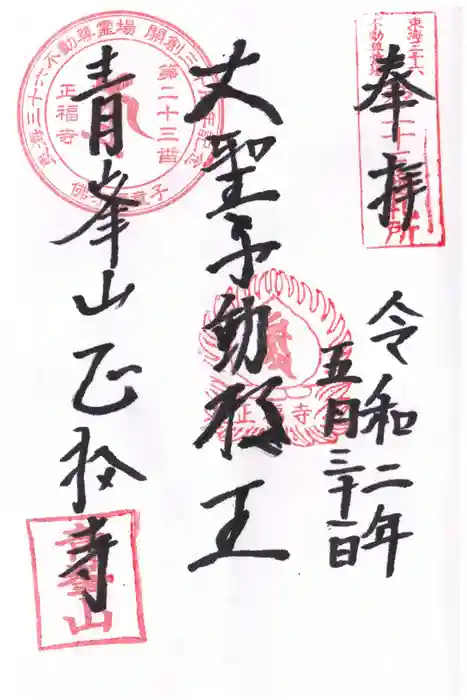 東海三十六
不動尊霊場
奉拝
令和二年
五月三十一日
大聖不動明王
正福寺
青峯山正福寺
東海三十六不動尊霊場 開創三十周年記念
第二十三番
正福寺